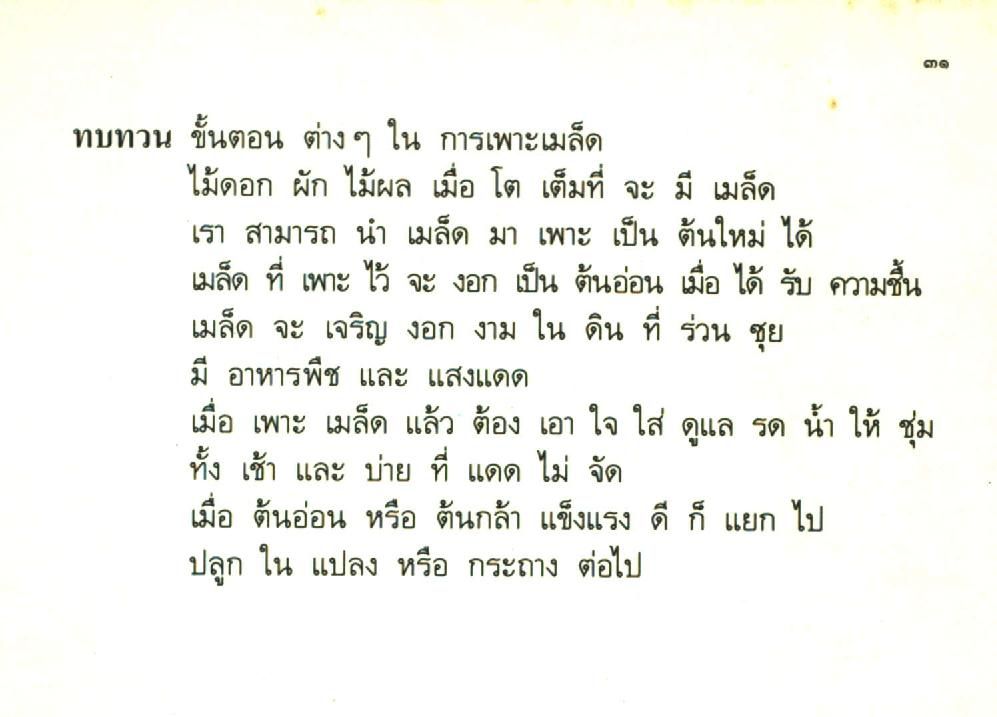 ๓๑
ทบทวน ขั้นตอน ต่างๆ ใน การเพาะเมล็ด
ไม้ดอก ผัก ไม้ผล เมื่อ โต เต็มที่ จะ มี เมล็ด
เรา สามารถ นำ เมล็ด มา เพาะ เป็น ต้นใหม่ ได้
เมล็ด ที่ เพาะ ไว้ จะ งอก เป็น ต้นอ่อน เมื่อ ได้ รับ ความชื้น
เมล็ด จะ เจริญ งอก งาม ใน ดิน ที่ ร่วน ซุย
มี อาหารพืช และ แสงแดด
เมื่อ เพาะ เมล็ด แล้ว ต้อง เอา ใจ ใส่ ดูแล รด น้ำ ให้ ชุ่ม
ทั้ง เช้า และ บ่าย ที่ แดด ไม่ จัด
เมื่อ ต้นอ่อน หรือ ต้นกล้า แข็งแรง ดี ก็ แยก ไป
ปลูก ใน แปลง หรือ กระถาง ต่อไป